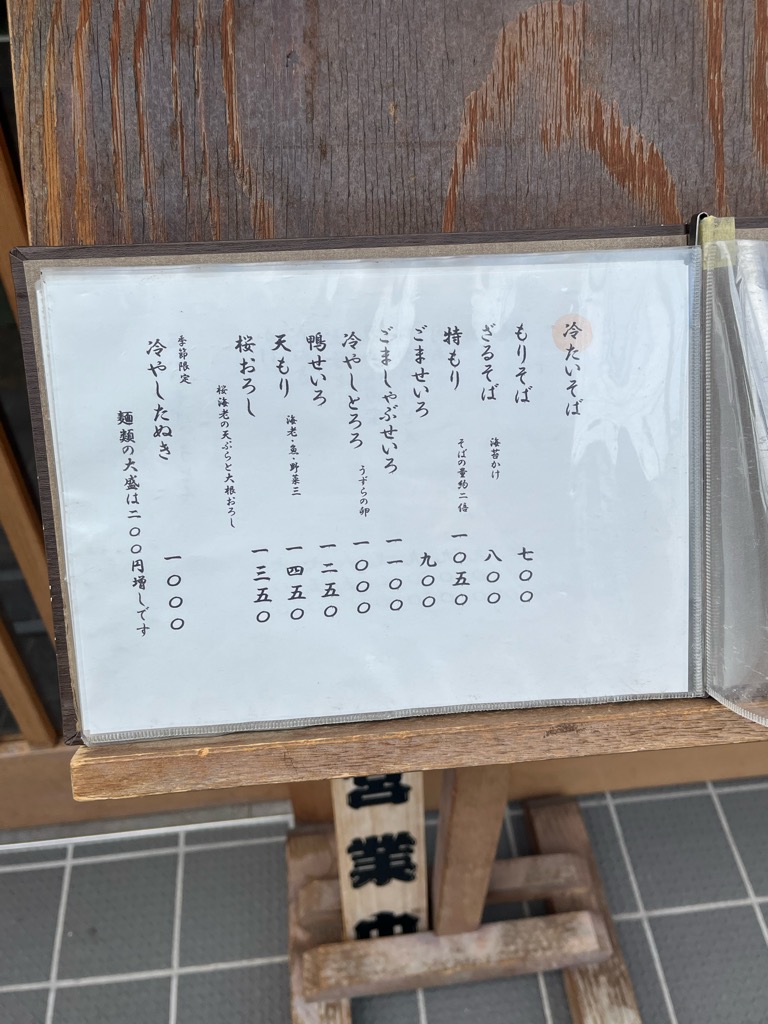 冷たいそば
もりそば 七〇〇
ざるそば 海苔かけ 八〇〇
特もり そばの量約二倍 一〇五〇
ごませいろ 九〇〇
ごましゃぶせいろ 一一〇〇
冷やしとろろ うずらの卵 一〇〇〇
鴨せいろ 一二五〇
天もり 海老・魚・野菜三 一四五〇
桜おろし 一三五〇
桜海老の天ぷらと大根おろし
季節限定
冷やしたぬき 一〇〇〇
麺類の大盛は二〇〇円増しです
営業中